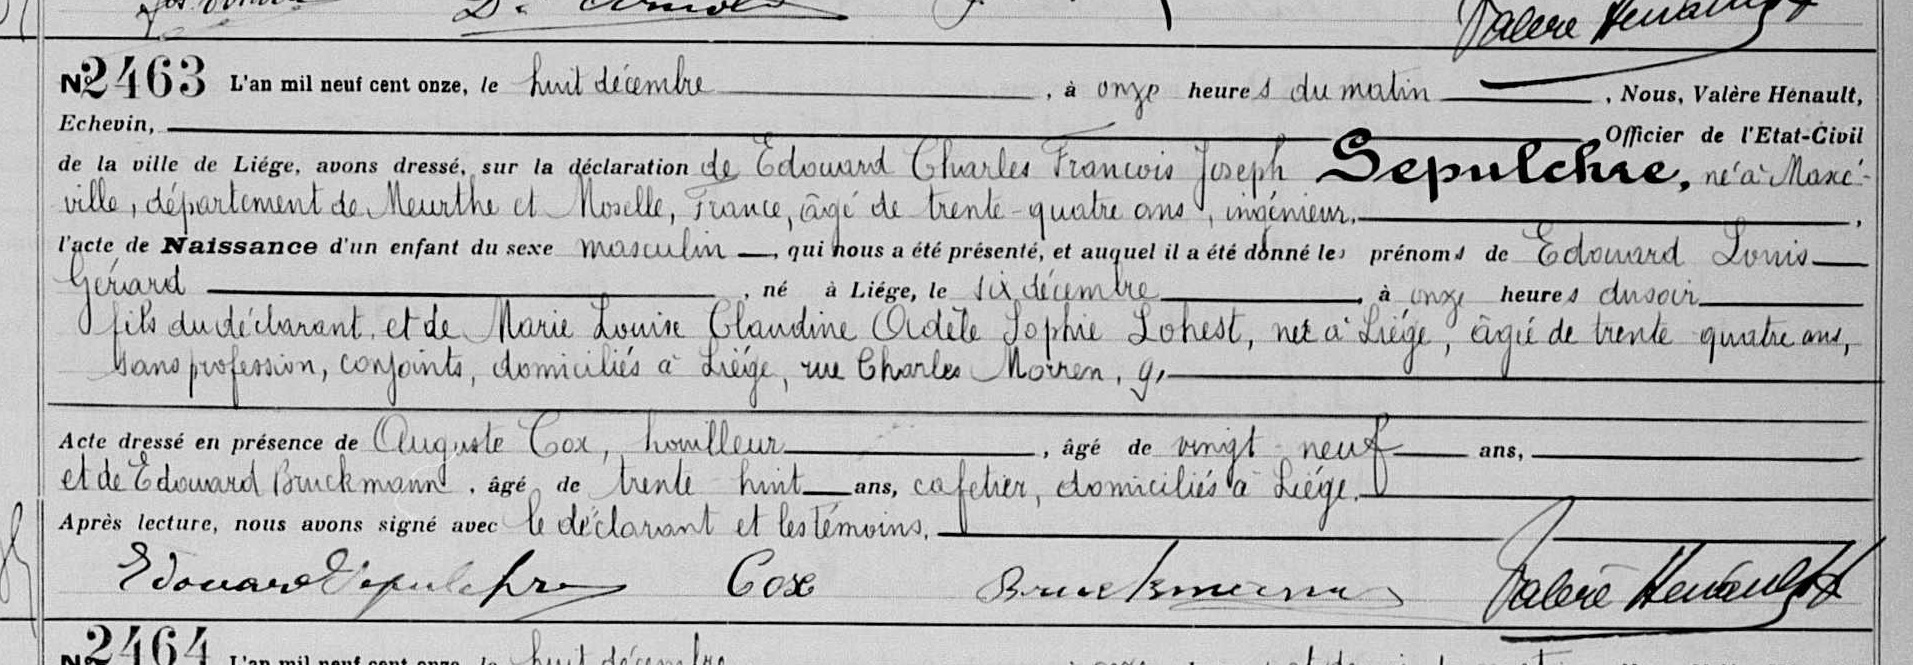 Valère Hénault
Nº 2463 L'an mil neuf cent onze, le huit décembre, à onze heures du matin, Nous, Valère Hénault,
Echevin, Officier de l'Etat-Civil
de la ville de Liége, avons dressé, sur la déclaration de Edouard Charles François Joseph Sepulchre, né à Maxé-
ville, département de Meurthe et Moselle, France, âgé de trente-quatre ans, ingénieur,
l'acte de Naissance d'un enfant du sexe masculin, qui nous a été présenté, et auquel il a été donné les prénoms de Edouard Louis
Gérard, né à Liége, le six décembre, à onze heures du soir
fils du déclarant et de Marie Louise Claudine Adèle Sophie Lohest, née à Liége, âgée de trente quatre ans,
sans profession, conjoints, domiciliés à Liége, rue Charles Morren, 9,
Acte dressé en présence de Auguste Cox, houilleur, âgé de vingt-neuf ans,
et de Edouard Bruckmann, âgé de trente huit ans, cafetier, domiciliés à Liége.
Après lecture, nous avons signé avec le déclarant et les témoins.
Edouard Sepulchre Cox Bruckmann Valère Hénault
Nº 2464 L'an mil neuf cent onze, le huit décembre